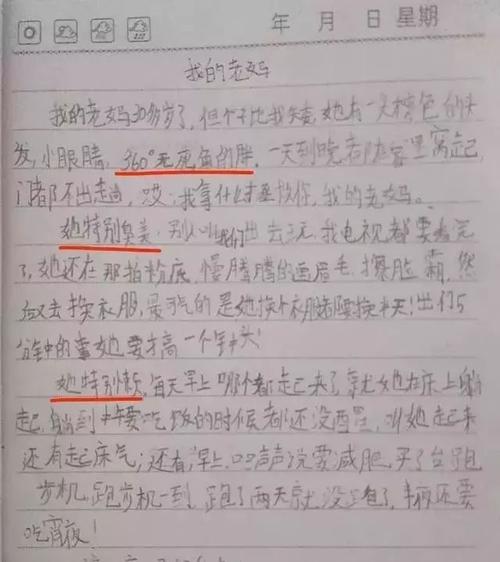 年 月 日 星期
我的老妈
我的老妈30多岁了,但个子比我矮,她有一头棕色的头
发,小眼睛,360°无死角的胖,一天到晚都在家里窝起,
门都不出走,哎,我拿什么拯救你,我的老妈。
她特别臭美,别人叫我们出去玩,我电视都要看完
了,她还在那拍粉底,慢腾腾的画眉毛,擦脸霜,然
后又去换衣服,最气的是她换个衣服都要换半天!出门5
分钟的事她要才搞一个钟头!
她特别懒,每天早上哪个都起来了,就她在床上躺
起,躺到中午要吃饭的时候都还没醒,叫她起来
还有起床气;还有,早上口口声声说要减肥,买了台跑
步机,跑步机一到,跑了两天就没跑了,半夜还要
吃宵夜!